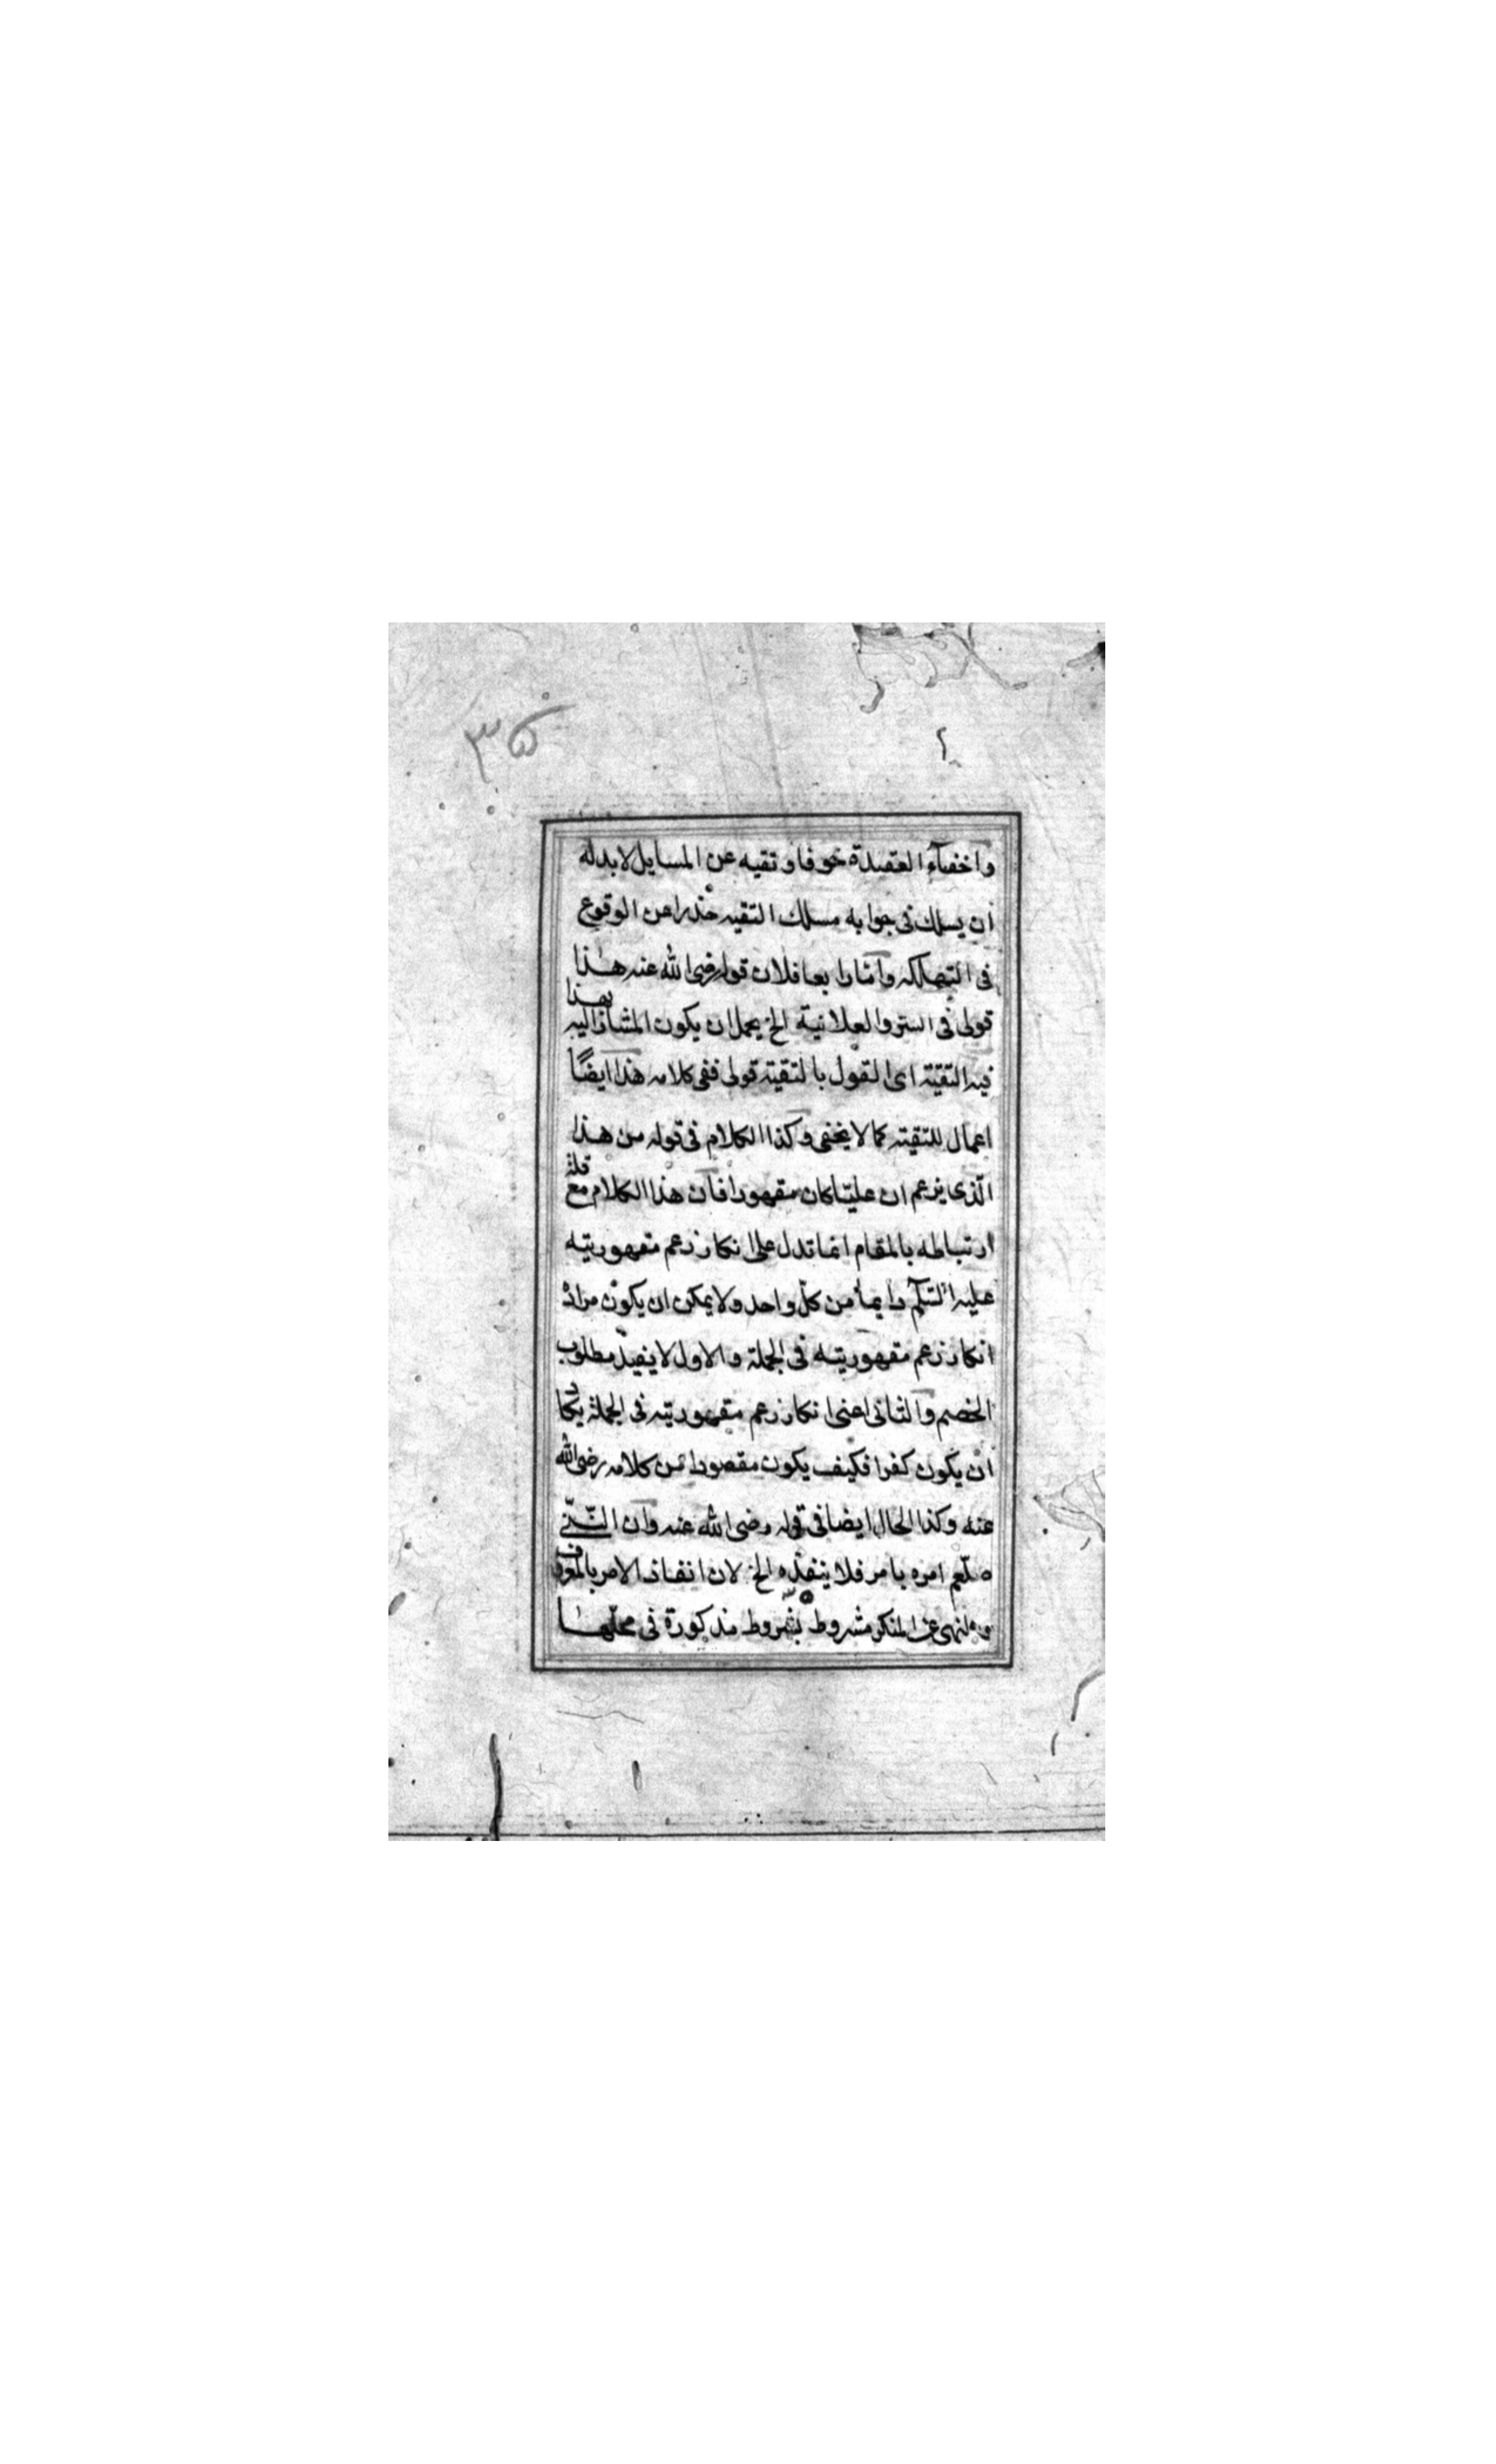 ٣٥
واخفآء العقيدة خوفا وتقيه عن المسايل لابد له
ان يسلك فى جوابه مسلك التقيه حذرا عن الوقوع
فى التهلكه وامّا رابعا فلان قوله رضى الله عنه هٰذا
قولى فى السر والعلانية الخ يحمل ان يكون المشار اليه بهذا
فيه التقيّة اى القول بالتقيّه قولى ففى كلامه هذا ايضًا
اعمال للتقيته كما لا يخفى وكذا الكلام فى قوله من هذا
الّذى يزعم ان عليّا كان مقهورا فان هذا الكلام مع قلة
ارتباطه بالمقام انما تدل على انكار زعم مقهوريته
عليه السّلام دايما من كلّ واحد ولا يمكن ان يكون مراده
انكار زعم مقهوريته فى الجملة والاول لا يفيد مطلوب
الخصم والثانى اعنى انكار زعم مقهوريته فى الجملة يكاد
ان يكون كفرا فكيف يكون مقصودا من كلامه رضى الله
عنه وكذا الحال ايضا فى قوله رضى الله عنه وان النّبىّ
صلّعم امره بامر فلا ينفذه الخ لان انفاذ الامر بالمعروف
والنهى عن المنكر مشروط بشروط مذكورة فى محلّها